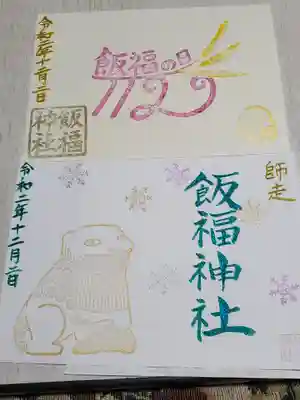 飯福の日
1129
令和二年十二月二日
飯福
神社
師走
飯福神社
令和二年十二月二日